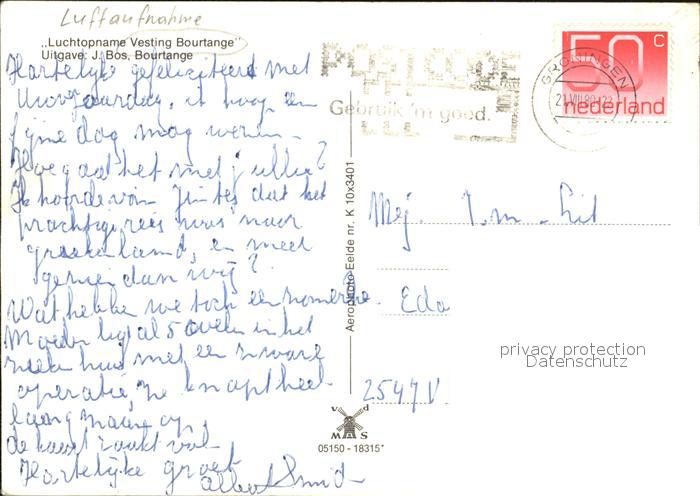 Luftaufnahme
„Luchtopname Vesting Bourtange"
Uitgave: J. Bos, Bourtange
Hartelijk gefeliciteerd met
Uw verjaardag, ik hoop een
fijne dag mag weren.
Hoe gaat het met jullie?
Ik hoorde van Jintes dat het
prachtige reis was naar
griekenland, en meer
dan wij?
Wat hebben we toch een zomer he.
Moeder ligt al 5 weken in het
zieken huis met een zware
operatie, ze knapt heel
laang maar op,
de kaart raakt vol
Hartelijke groet
Albert Smid
POSTCODE
Gebruik 'm goed.
GRONINGEN
50 C
nederland
Aerophoto Eelde nr. K 10x3401
Mej. J.m.
2547 V
privacy protection
Datenschutz
v d P
W M S
05150 - 18315*